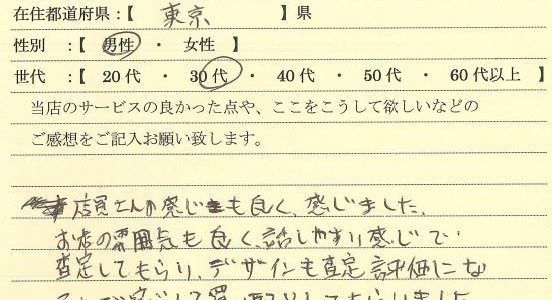 在住都道府県:【 東京 】県
性別 :【 男性 ・ 女性 】
世代 :【 20代 ・ 30代 ・ 40代 ・ 50代 ・ 60代以上 】
当店のサービスの良かった点や、ここをこうして欲しいなどの
ご感想をご記入お願い致します。
店員さんの感じも良く、感じました。
お店の雰囲気も良く、話しやすい感じで
査定してもらい、デザインも査定評価にな
してもらいました